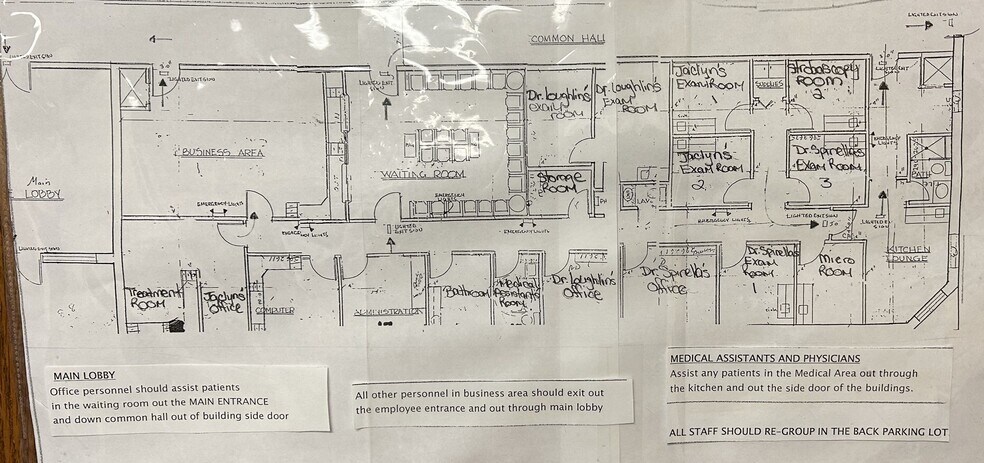 LIGHTED EXIT SIGN
COMMON HALL
LIGHTED EXIT SIGN
LIGHTED EXIT SIGN
Dr. Loughlin's
Exam
ROOM
Dr. Loughlin's
Exam
ROOM
Jaclyn's
Exam ROOM
1
SUPPLIES
Stroboscopy
ROOM
2
BUSINESS AREA
WAITING ROOM
Storage
ROOM
Jaclyn's
Exam ROOM
2
Dr. Spirella's
Exam ROOM
3
EMERGENCY
LIGHTS
Main
LOBBY
EMERGENCY LIGHTS
EMERGENCY
LIGHTS
LAV.
EMERGENCY LIGHTS
LIGHTED EXIT SIGN
LIGHTED
EXIT
SIGN
EMERGENCY LIGHTS
KITCHEN
LOUNGE
Treatment
ROOM
Jaclyn's
Office
COMPUTER
ADMINISTRATION
Bathroom
Medical
Assistants
Room
Dr. Loughlin's
Office
Dr. Spirella's
Office
Dr. Spirella's
Exam
ROOM
1
Micro
ROOM
MAIN LOBBY
Office personnel should assist patients
in the waiting room out the MAIN ENTRANCE
and down common hall out of building side door
All other personnel in business area should exit out
the employee entrance and out through main lobby
MEDICAL ASSISTANTS AND PHYSICIANS
Assist any patients in the Medical Area out through
the kitchen and out the side door of the buildings.
ALL STAFF SHOULD RE-GROUP IN THE BACK PARKING LOT